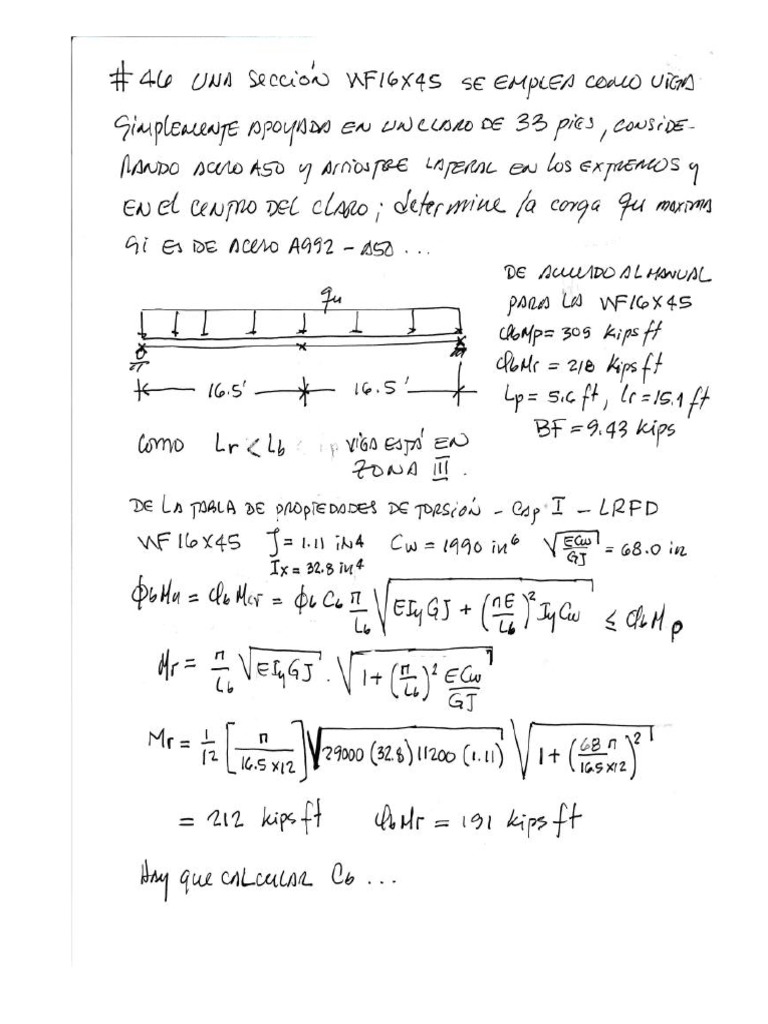 # 46 UNA SECCIÓN WF16X45 SE EMPLEA COMO VIGA
SIMPLEMENTE APOYADA EN UN CLARO DE 33 PIES, CONSIDE-
RANDO ACERO A50 Y ARRIOSTRE LATERAL EN LOS EXTREMOS Y
EN EL CENTRO DEL CLARO; determine la carga qu maxima
SI ES DE ACERO A992 - A50 ...
DE ACUERDO AL MANUAL
PARA LA WF16X45
ϕbMp = 309 kips ft
ϕbMr = 218 kips ft
Lp = 5.6 ft, Lr = 15.1 ft
BF = 9.43 kips
qu
16.5' 16.5'
COMO Lr < Lb VIGA ESTÁ EN
ZONA III.
DE LA TABLA DE PROPIEDADES DE TORSIÓN - Cap I - LRFD
WF 16X45 J = 1.11 in4 Cw = 1990 in6 √(ECw/GJ) = 68.0 in
Ix = 32.8 in4
ϕbMn = ϕbMcr = ϕb Cb π/Lb √(EIyGJ + (πE/Lb)² IyCw) ≤ ϕbMp
Mr = π/Lb √(EIyGJ) . √(1 + (π/Lb)² ECw/GJ)
Mr = 1/12 [π/(16.5x12)] √(29000 (32.8) 11200 (1.11)) √(1 + (68π/(16.5x12))²)
= 212 kips ft ϕbMr = 191 kips ft
HAY QUE CALCULAR Cb ...